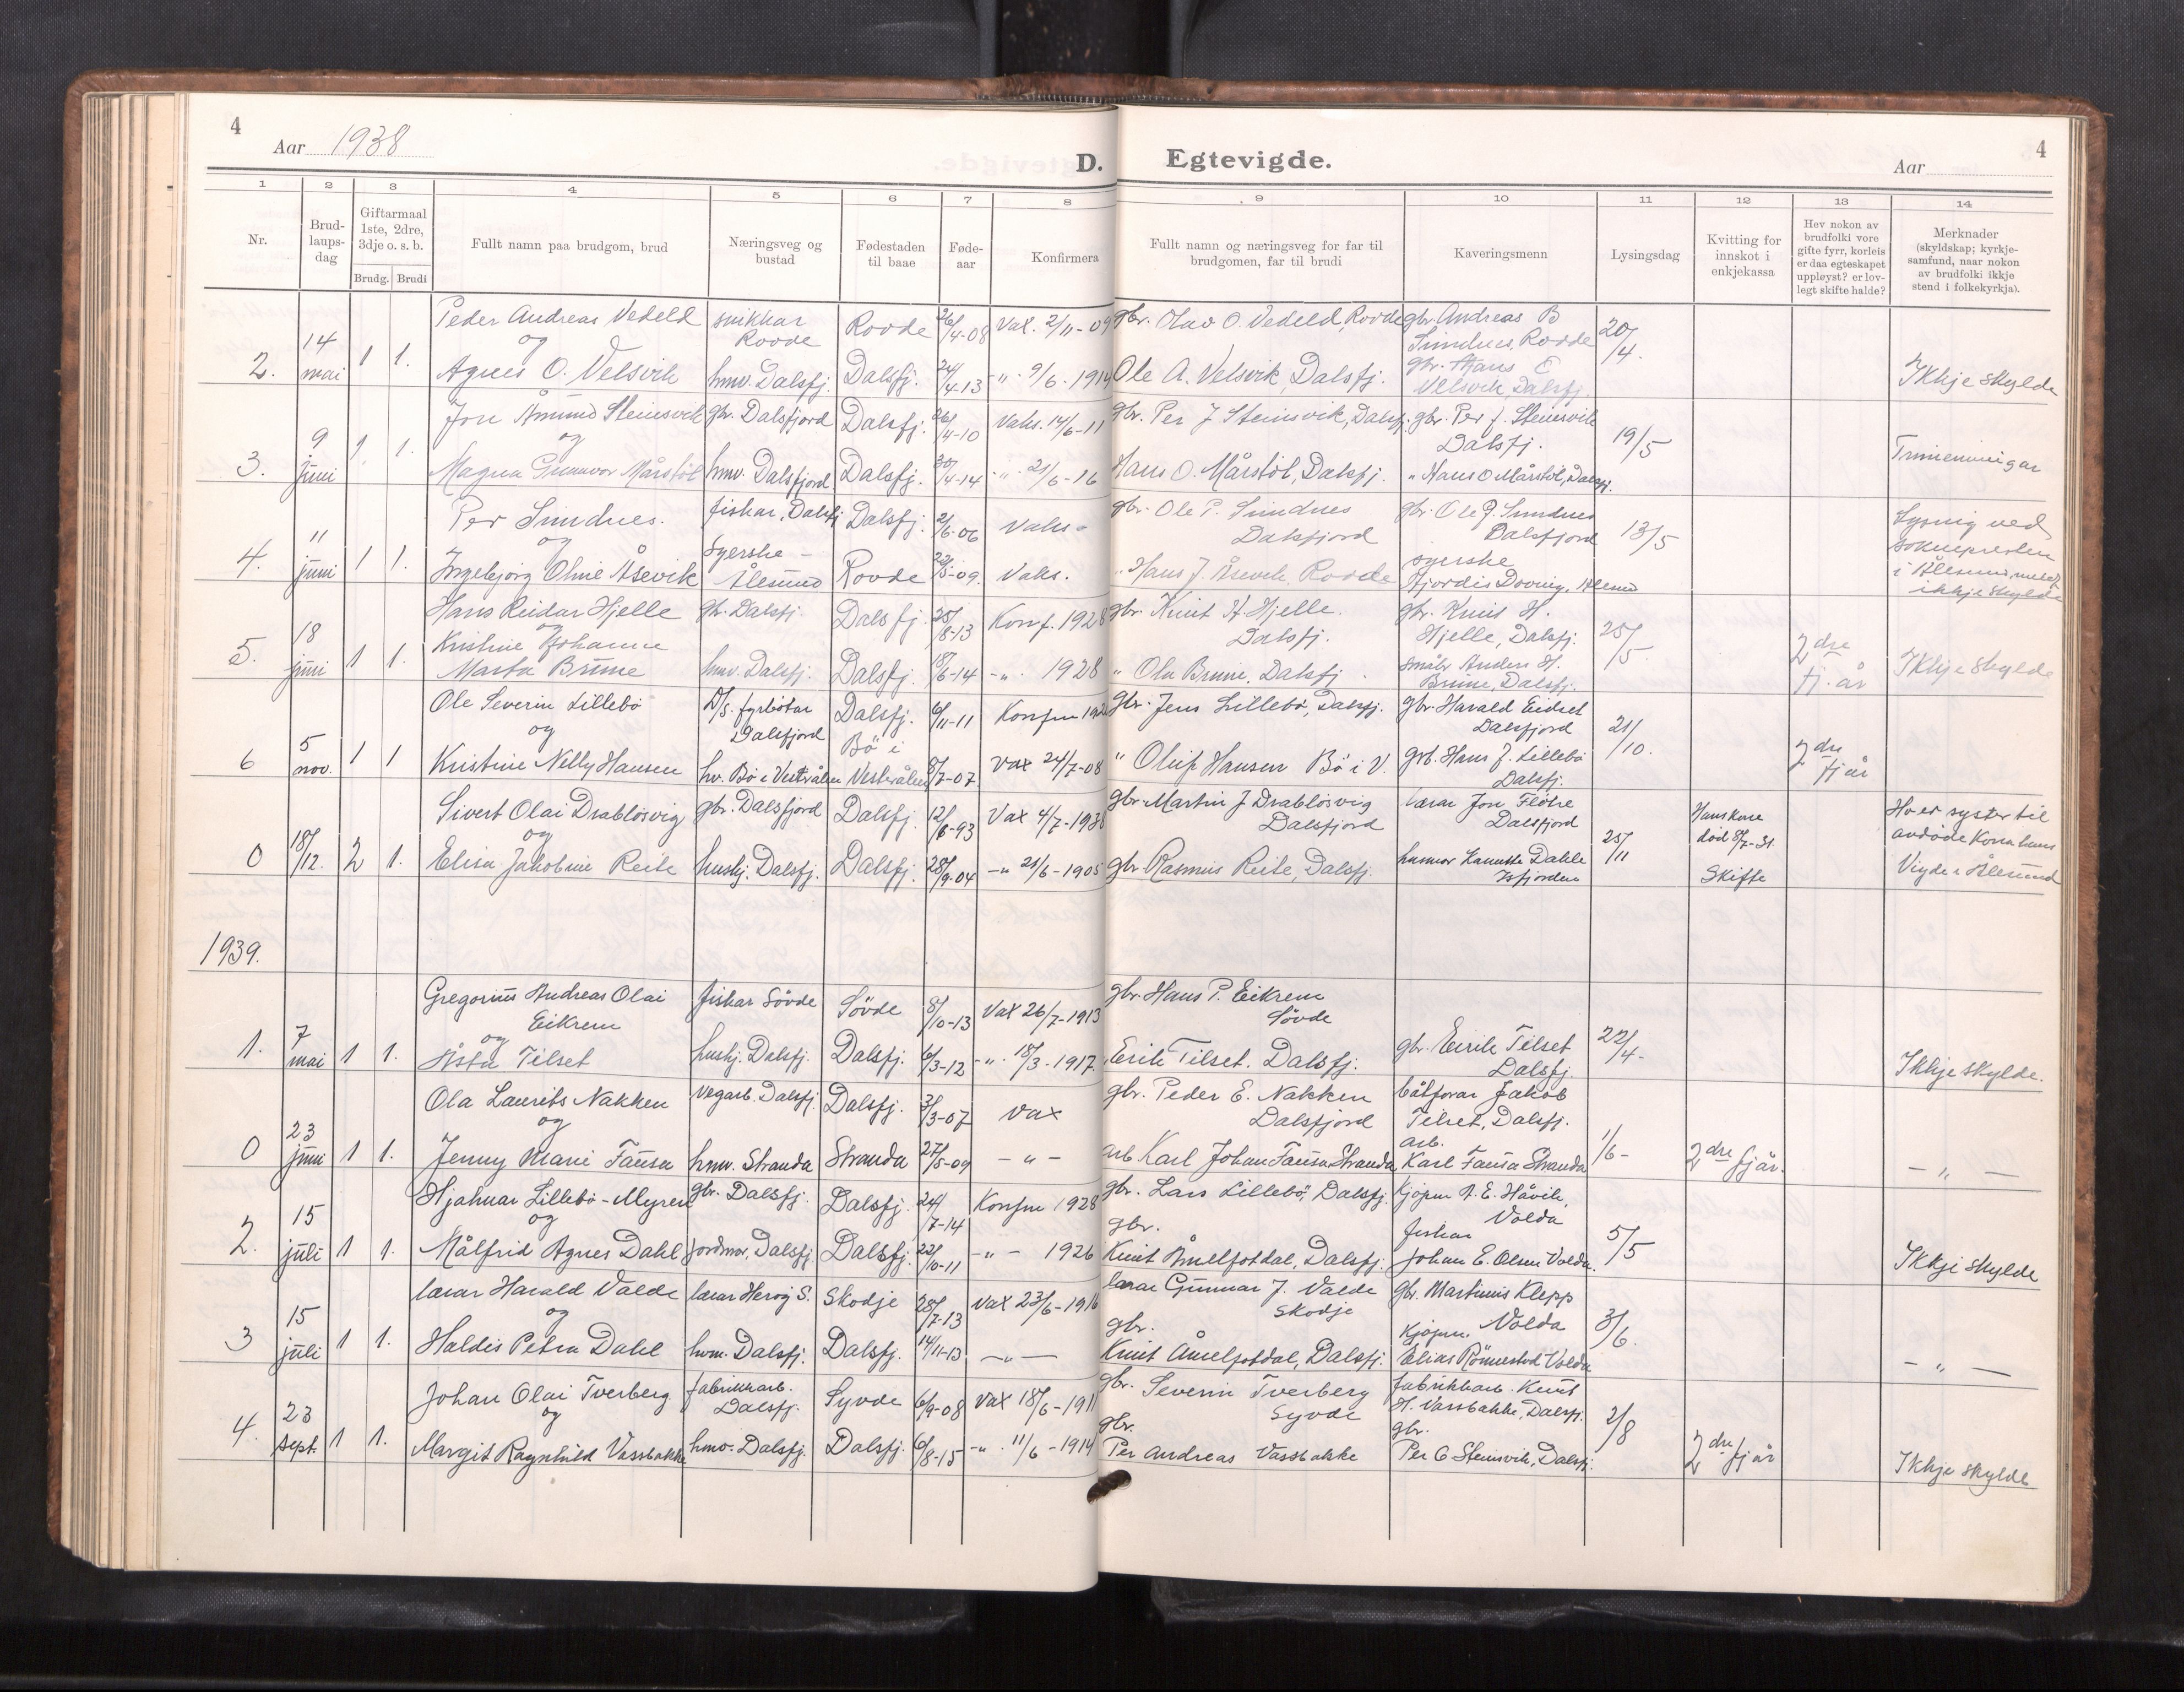 4
Aar 1938
D. Egtevigde.
Aar
4
1 2 3 4 5 6 7 8 9 10 11 12 13 14
Nr.
Brud-
laups-
dag
Giftarmaal
1ste, 2dre,
3dje o. s. b.
Brudg. Brudi
Fullt namn paa brudgom, brud
Næringsveg og
bustad
Fødestaden
til baae
Føde-
aar
Konfirmera
Fullt namn og næringsveg for far til
brudgomen, far til brudi
Kaveringsmenn
Lysingsdag
Kvitting for
innskot i
enkjekassa
Hev nokon av
brudfolki vore
gifte fyrr, korleis
er daa egteskapet
uppløyst? er lov-
legt skifte halde?
Merknader
(skyldskap; kyrkje-
samfund, naar nokon
av brudfolki ikkje
stend i folkekyrkja).
Peder Andreas Vedeld snikkar Rovde Rovde 26/4-08 Vax. 2/11-09 gbr. Olav O. Vedeld, Rovde gbr. Andreas B Simdnes, Rovde 20/4.
og
2. 14 mai 1 1. Agnes O. Velsvik hmv. Dalsfj. Dalsfj. 24/4-13 -"- 9/6-1914 Ole A. Velsvik, Dalsfj. gbr. Hans E Velsvik, Dalsfj. Ikkje skylde
Jon Åmund Steinsvik gbr. Dalsfjord Dalsfj. 26/4-10 Vaks. 14/6-11 gbr. Per J Steinsvik, Dalsfj. gbr. Per J. Steinsvik Dalsfj. 19/5
og
3. 9 juni 1 1. Magna Gunnvor Mårstöl hmv. Dalsfjord Dalsfj. 30/4-14 -"- 21/6-16 Hans O. Mårstöl, Dalsfj. " Hans O Mårstöl, Dalsfj. Trimenningar
Per Simdnes. fiskar, Dalsfj Dalsfj. 2/6-06 Vaks- gbr. Ole P. Simdnes Dalsfjord gbr. Ole P. Simdnes Dalsfjord 13/5
og
4. 11 juni 1 1. Ingebjörg Oline Åsevik Syerske - Ålesund Rovde 22/5-09. Vaks. " Hans J. Åsevik, Rovde syerske Hjördis Dovnig, Ålesund Lysnig ved sokneprestin i Ålesund ikkje skylde
Hans Reidar Hjelle gbr. Dalsfj. Dalsfj. 25/8-13 Konf. 1928 gbr. Knut H. Hjelle. Dalsfj. gbr. Knut H. Hjelle, Dalsfj. 25/5.
og
5. 18 juni 1 1. Kristine Johanne Marta Brune hmv. Dalsfj. Dalsfj. 18/6-14 -"- 1928 " Ola Brune, Dalsfj. småbr Anders H. Brune, Dalsfj. 2dre fj. år Ikkje skylde
Ole Severin Lillebö D/S. fyrbötar Dalsfjord Dalsfj. 6/11-11 Konfm 192 gbr. Jens Lillebö, Dalsfj. gbr. Harald Eidset Dalsfjord 21/10.
og
6 5 nov. 1 1 Kristine Nelly Hansen hv. Bö i Vesterålen Bö i Vesterålen 8/7-07 Vax 24/7-08 " Oluf Hansen Bö i V. gbr. Hans J. Lillebö Dalsfj. 2dre fj år
Sivert Olai Drablösvig gbr. Dalsfjord Dalsfj. 12/6-93 Vax 4/7-1938 gbr. Martin J Drablösvig Dalsfjord lærar Jon Flöte Dalsfjord Hans kone död 8/7-31.
og
0 18/12. 2 1. Elisa Jakobine Reite hushj. Dalsfj. Dalsfj. 28/9-04 -"- 21/6-1905 gbr Rasmus Reite, Dalsfj. husmor Dahle Isfjorden 25/11 Skifte Ho er syster til avdöde Kona hans Vigde i Ålesund
1939.
Gregorius Andreas Olai Eikrem fiskar Sövde Sövde 8/10-13 Vax 26/7-1913 gbr. Hans P. Eikrem Sövde
og
1. 7 mai 1 1. Åsta Tilset hushj. Dalsfj. Dalsfj. 6/3-12 -"- 18/3-1917. Eirik Tilset. Dalsfj. gbr. Eirik Tilset Dalsfj. 22/4- Ikkje skylde.
Ola Laurits Nakken vegarb. Dalsfj Dalsfj. 3/3-07 Vax gbr. Peder E. Nakken Dalsfjord båtförar Jakob Tilset, Dalsfj.
og
0 23 juni 1 1. Jenny Marie Fausa hmv. Stranda Stranda 27/5-09 -"- arb Karl Johan Fausa Stranda arb. Karl Fausa Stranda 1/6- 2dre fjår. -"-
Hjalmar Lillebö-Myren gbr. Dalsfj. Dalsfj. 24/7-14 Konfm 1928 gbr. Lars Lillebö, Dalsfj. Kjöpm A. E. Håvik, Volda
og
2. 15 juli 1 1. Målfrid Agnes Dahl jordmor, Dalsfj Dalsfj. 22/10-11 -"- 1926 gbr. Knut Åmelfotdal, Dalsfj. fiskar Johan E. Olsen Volda. 5/5 Ikkje skylde
lærar Harald Valde lærar Heröy S. Skodje 28/7-13 Vax 23/6-1916 lærar Gunnar J. Valde Skodje gbr. Martinus Klepp Volda
og
3 15 juli 1 1. Haldis Petra Dahl hvm. Dalsfj. Dalsfj. 14/11-13 -"- gbr. Knut Åmelfotdal, Dalsfj. Kjöpm. Elias Römestad Volda 3/6. -"-
Johan Olai Tverberg fabrikkarb. Dalsfj. Syvde 6/9-08 Vax 18/6-1911 gbr. Severin Tverberg Syvde fabrikkarb. Knut H. Vassbakke, Dalsfj.
og
4. 23 sept. 1 1. Margit Ragnhild Vassbakke hmv. Dalsfj. Dalsfj. 6/8-15 -"- 11/6-1914 gbr. Per Andreas Vassbakke gbr. Per O Steinsvik, Dalsfj. 2/8 2dre fjår Ikkje skylde